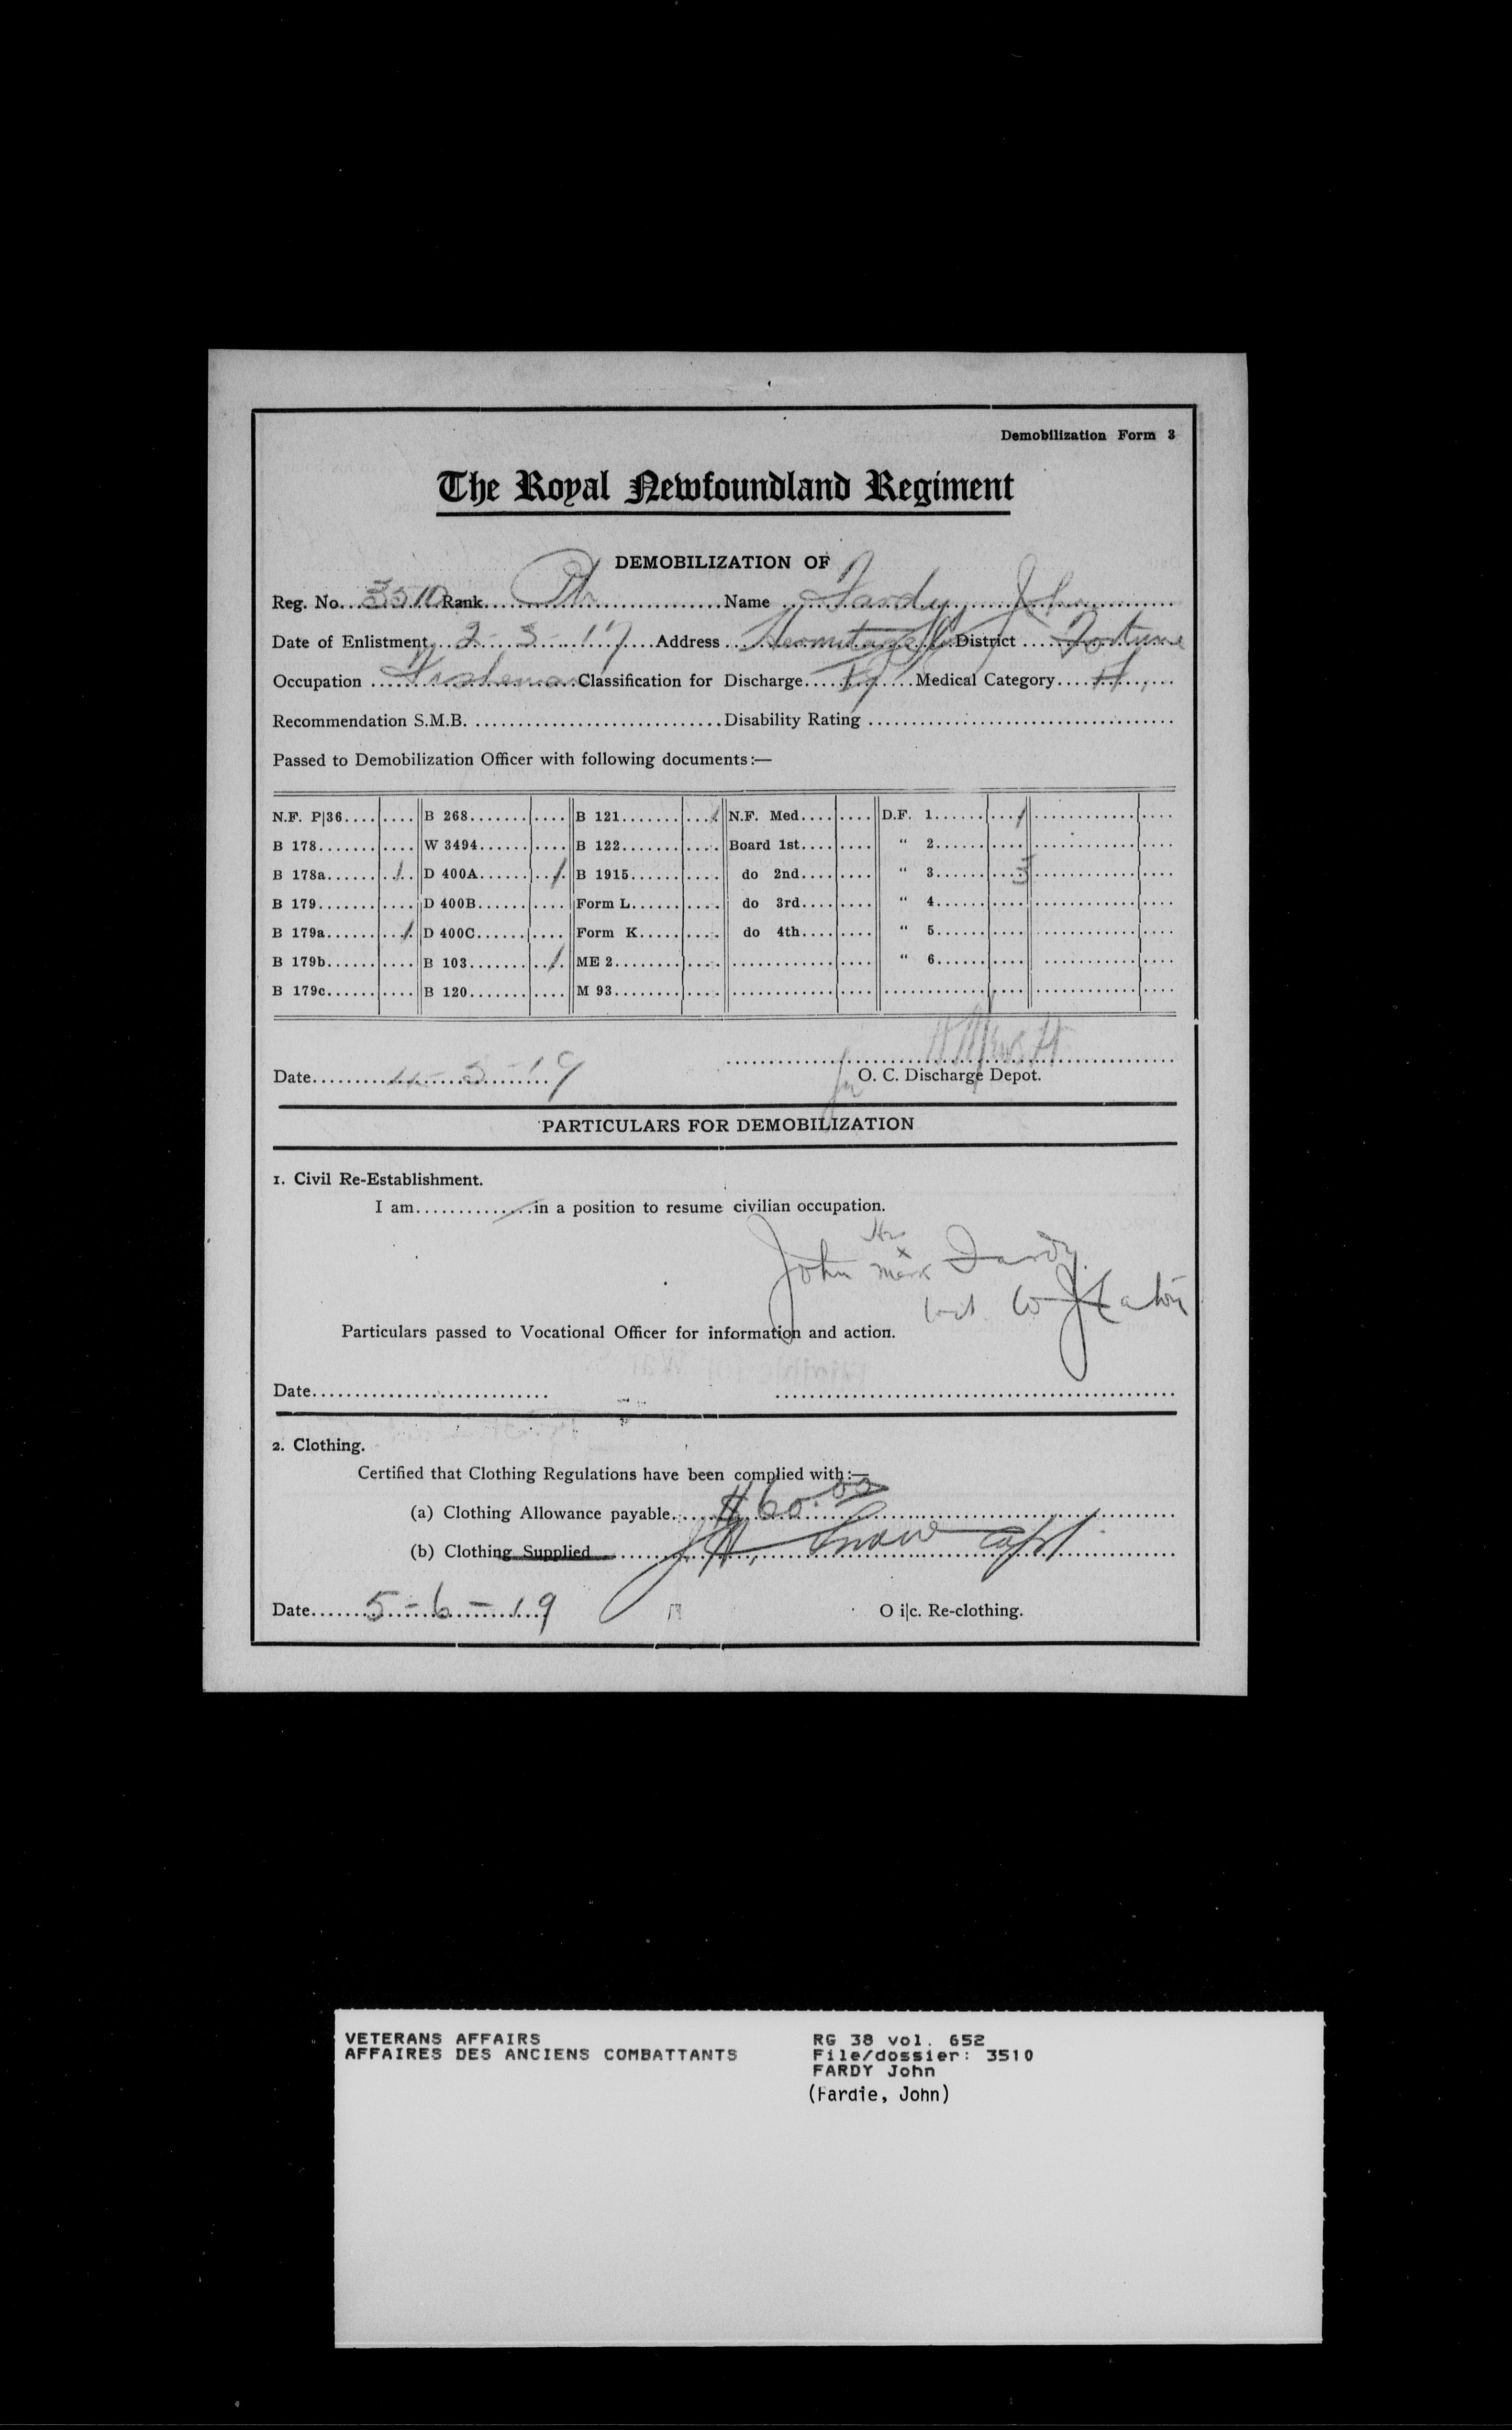 Demobilization Form 3
The Royal Newfoundland Regiment
DEMOBILIZATION OF
Reg. No. 3510 Rank Pte Name Fardy, John
Date of Enlistment 2-3-17 Address Hermitage District Fortune
Occupation Fisherman Classification for Discharge Medical Category A
Recommendation S.M.B. Disability Rating
Passed to Demobilization Officer with following documents:—
N.F. P|36 B 268 B 121 / N.F. Med. D.F. 1 /
B 178 W 3494 B 122 Board 1st " 2
B 178a 1 D 400A / B 1915 do 2nd " 3 3
B 179 D 400B Form L do 3rd " 4
B 179a / D 400C Form K do 4th " 5
B 179b B 103 / ME 2 " 6
B 179c B 120 M 93
Date -5-19 for O. C. Discharge Depot.
PARTICULARS FOR DEMOBILIZATION
1. Civil Re-Establishment.
I am in a position to resume civilian occupation.
His
John x Fardy
mark
wit. W J Eaton
Particulars passed to Vocational Officer for information and action.
Date
2. Clothing.
Certified that Clothing Regulations have been complied with:—
(a) Clothing Allowance payable $60.00
(b) Clothing Supplied J H Snow Capt
Date 5-6-19 O i|c. Re-clothing.
VETERANS AFFAIRS RG 38 vol. 652
AFFAIRES DES ANCIENS COMBATTANTS File/dossier: 3510
FARDY John
(Fardie, John)